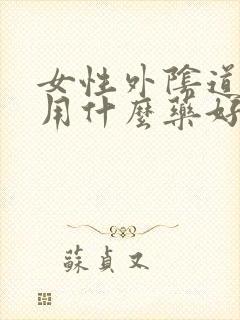 女性外陰道
用什麼藥好
蘇貞又